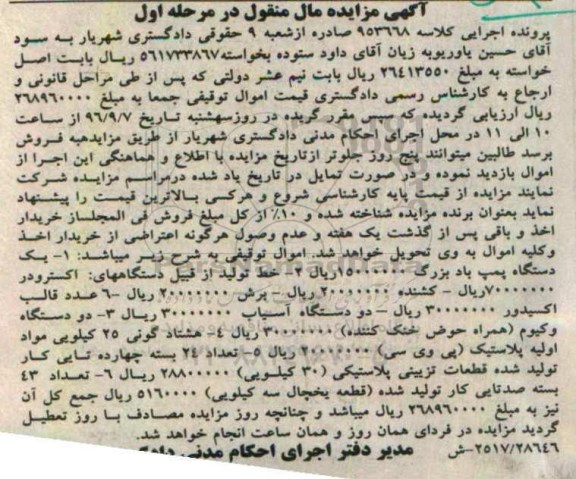 آگهی مزایده مال منقول در مرحله اول
پرونده اجرایی کلاسه ۹۵۳۶۶۸ صادره ازشعبه ۹ حقوقی دادگستری شهریار به سود
آقای حسین یاوریوبه زیان آقای داود ستوده بخواسته۵۶۱۷۳۳۸۶۷ ریال بابت اصل
خواسته به مبلغ ۲۶۴۱۳۵۵۰ ریال بابت نیم عشر دولتی که پس از طی مراحل قانونی و
ارجاع به کارشناس رسمی دادگستری قیمت اموال توقیفی جمعا به مبلغ ۲۶۸۹۶۰۰۰۰
ریال ارزیابی گردیده که سپس مقرر گریده در روزسهشنبه تاریخ ۹۶/۹/۷ از ساعت
۱۰ الی ۱۱ در محل اجرای احکام مدنی دادگستری شهریار از طریق مزایدهبه فروش
برسد طالبین میتوانند پنج روز جلوتر ازتاریخ مزایده با اطلاع و هماهنگی این اجرا از
اموال بازدید نموده و در صورت تمایل در تاریخ یاد شده درمراسم مزایده شرکت
نمایند مزایده از قیمت پایه کارشناسی شروع و هرکسی بالاترین قیمت را پیشنهاد
نماید بعنوان برنده مزایده شناخته شده و ۱۰٪ از کل مبلغ فروش فی المجلساز خریدار
اخذ و باقی پس از گذشت یک هفته و عدم وصول هرگونه اعتراضی از خریدار اخذ
وکلیه اموال به وی تحویل خواهد شد. اموال توقیفی به شرح زیر میباشد: ۱- یک
دستگاه پمپ باد بزرگ ۱۵۰۰۰۰۰۰ریال ۲- خط تولید از قبیل دستگاههای: اکسترودر
۷۰۰۰۰۰۰۰ریال - کشنده ۲۰۰۰۰۰۰۰ ریال - برش ۲۰۰۰۰۰۰۰ ریال -۶ عدد قالب
اکسیدور ۳۰۰۰۰۰۰۰ ریال - دو دستگاه آسیاب ۳۰۰۰۰۰۰۰ ریال ۳- دو دستگاه
وکیوم (همراه حوض خنک کننده) ۳۰۰۰۰۰۰۰ ریال ۴- هشتاد گونی ۲۵ کیلویی مواد
اولیه پلاستیک (پی وی سی) ۲۰۰۰۰۰۰۰ ریال ۵- تعداد ۲۴ بسته چهارده تایی کار
تولید شده قطعات تزیینی پلاستیکی (۳۰ کیلویی) ۲۸۸۰۰۰۰۰ ریال ۶- تعداد ۴۳
بسته صدتایی کار تولید شده (قطعه یخچال سه کیلویی) ۵۱۶۰۰۰۰ ریال جمع کل آن
نیز به مبلغ ۲۶۸۹۶۰۰۰۰ ریال میباشد و چنانچه روز مزایده مصادف با روز تعطیل
گردید مزایده در فردای همان روز و همان ساعت انجام خواهد شد.
۲۵۱۷/۲۸۶۴۶-ش مدیر دفتر اجرای احکام مدنی